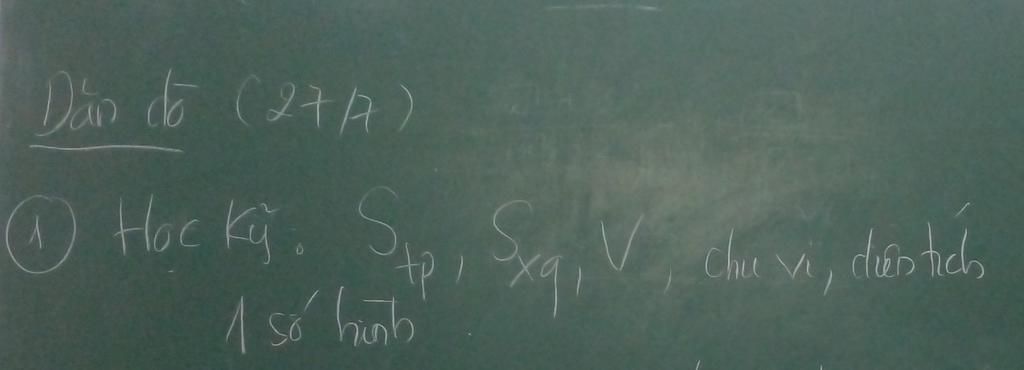 Dặn dò (27/7)
① Học kỹ: Stp, Sxq, V, chu vi, diện tích
1 số hình